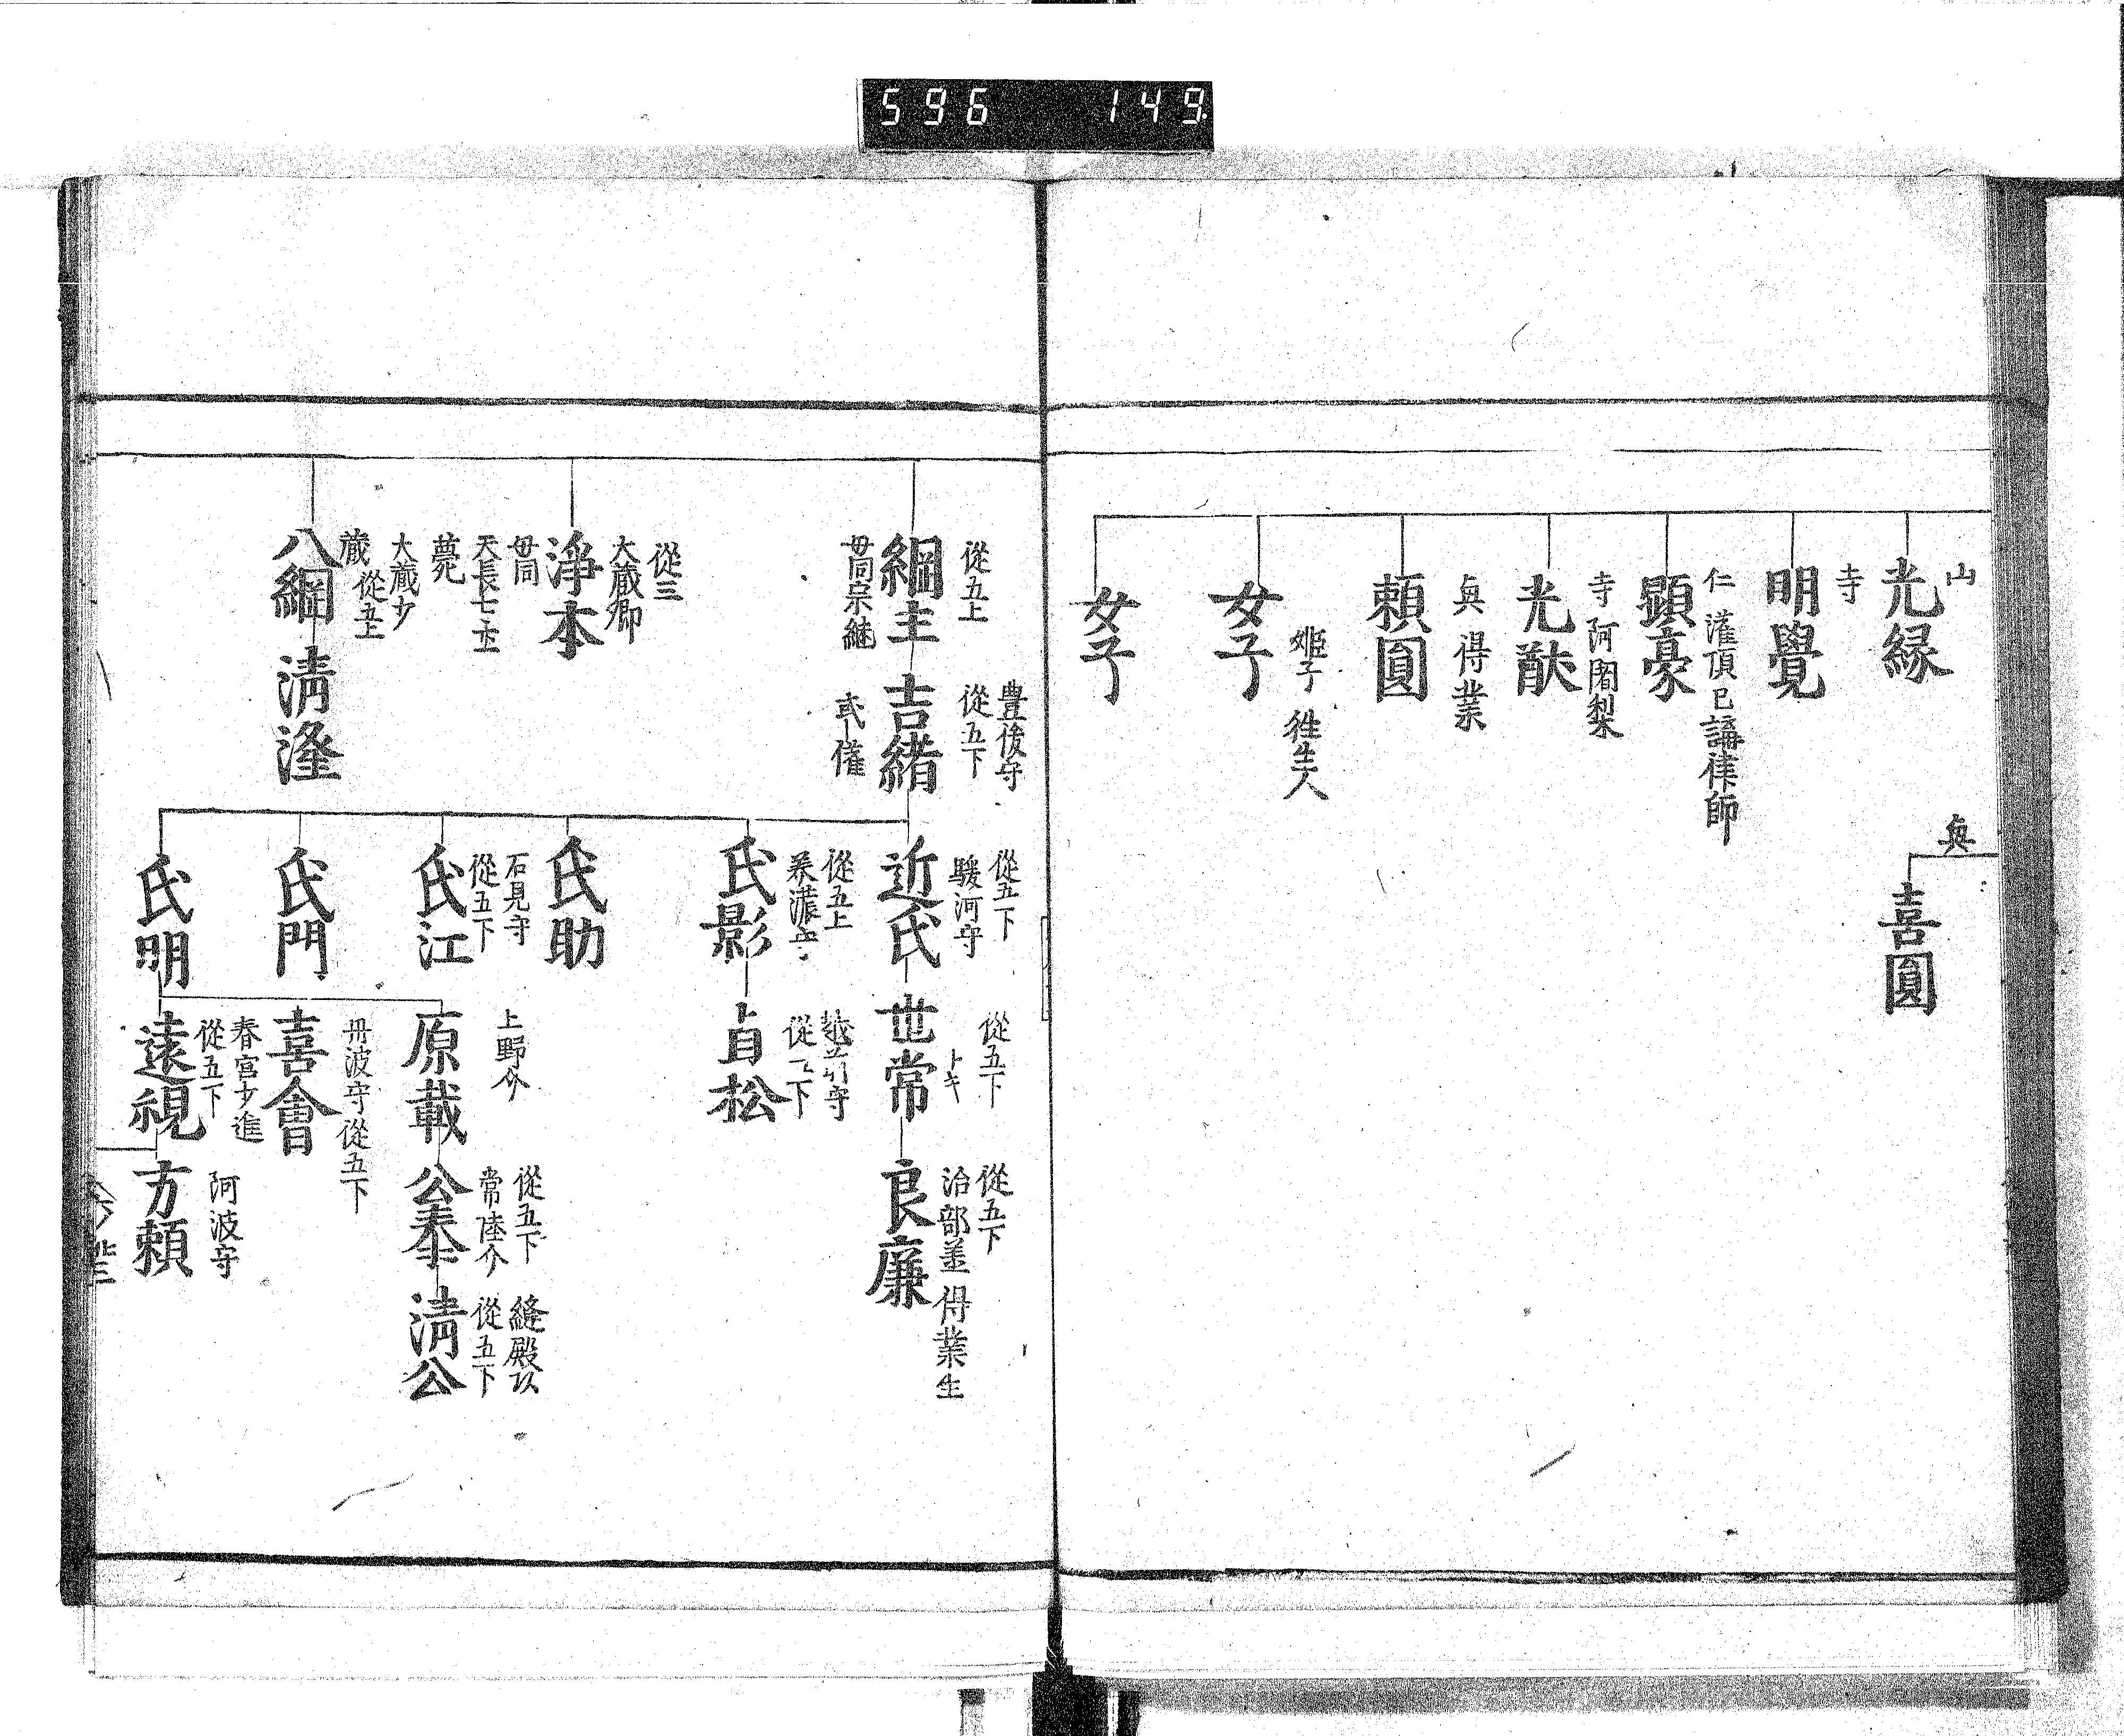 596 149
山
光縁
寺
明覺
仁 灌頂已講律師
顕豪
寺 阿闍梨
光猷
與 得業
頼圓
姫子 往生人
女子
女子
與
喜圓
從五上
綱主
母同宗継
豊後守
從五下
吉緒
或
從五下
駿河守
近氏
從五下
世常
從五下
治部 得業生
良廉
從五上
美濃守
氏影
越前守
從五下
貞松
從三
大蔵卿
淨本
母同
天長七
薨
氏助
石見守
從五下
氏江
上野介
原載
從五下
常陸介
公奉
縫殿
從五下
清公
大蔵少
蔵 從五上
八綱
清
氏門
丹波守從五下
喜會
氏明
春宮少進
從五下
遠視
阿波守
方頼